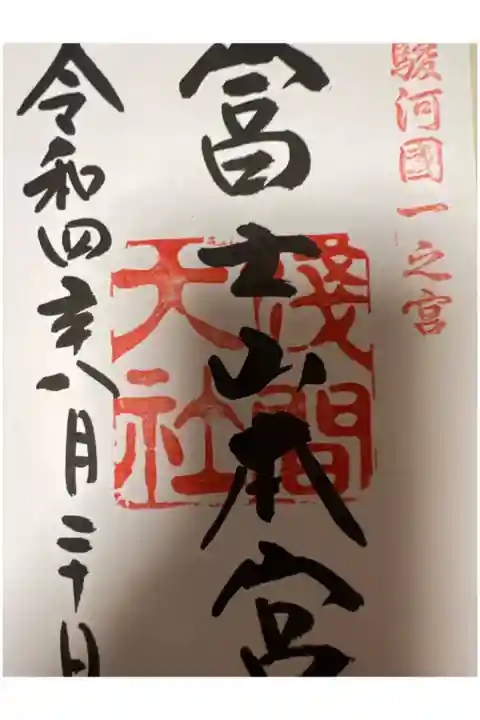 駿河國一之宮
富士山本宮
淺間大社
令和四年八月二十日